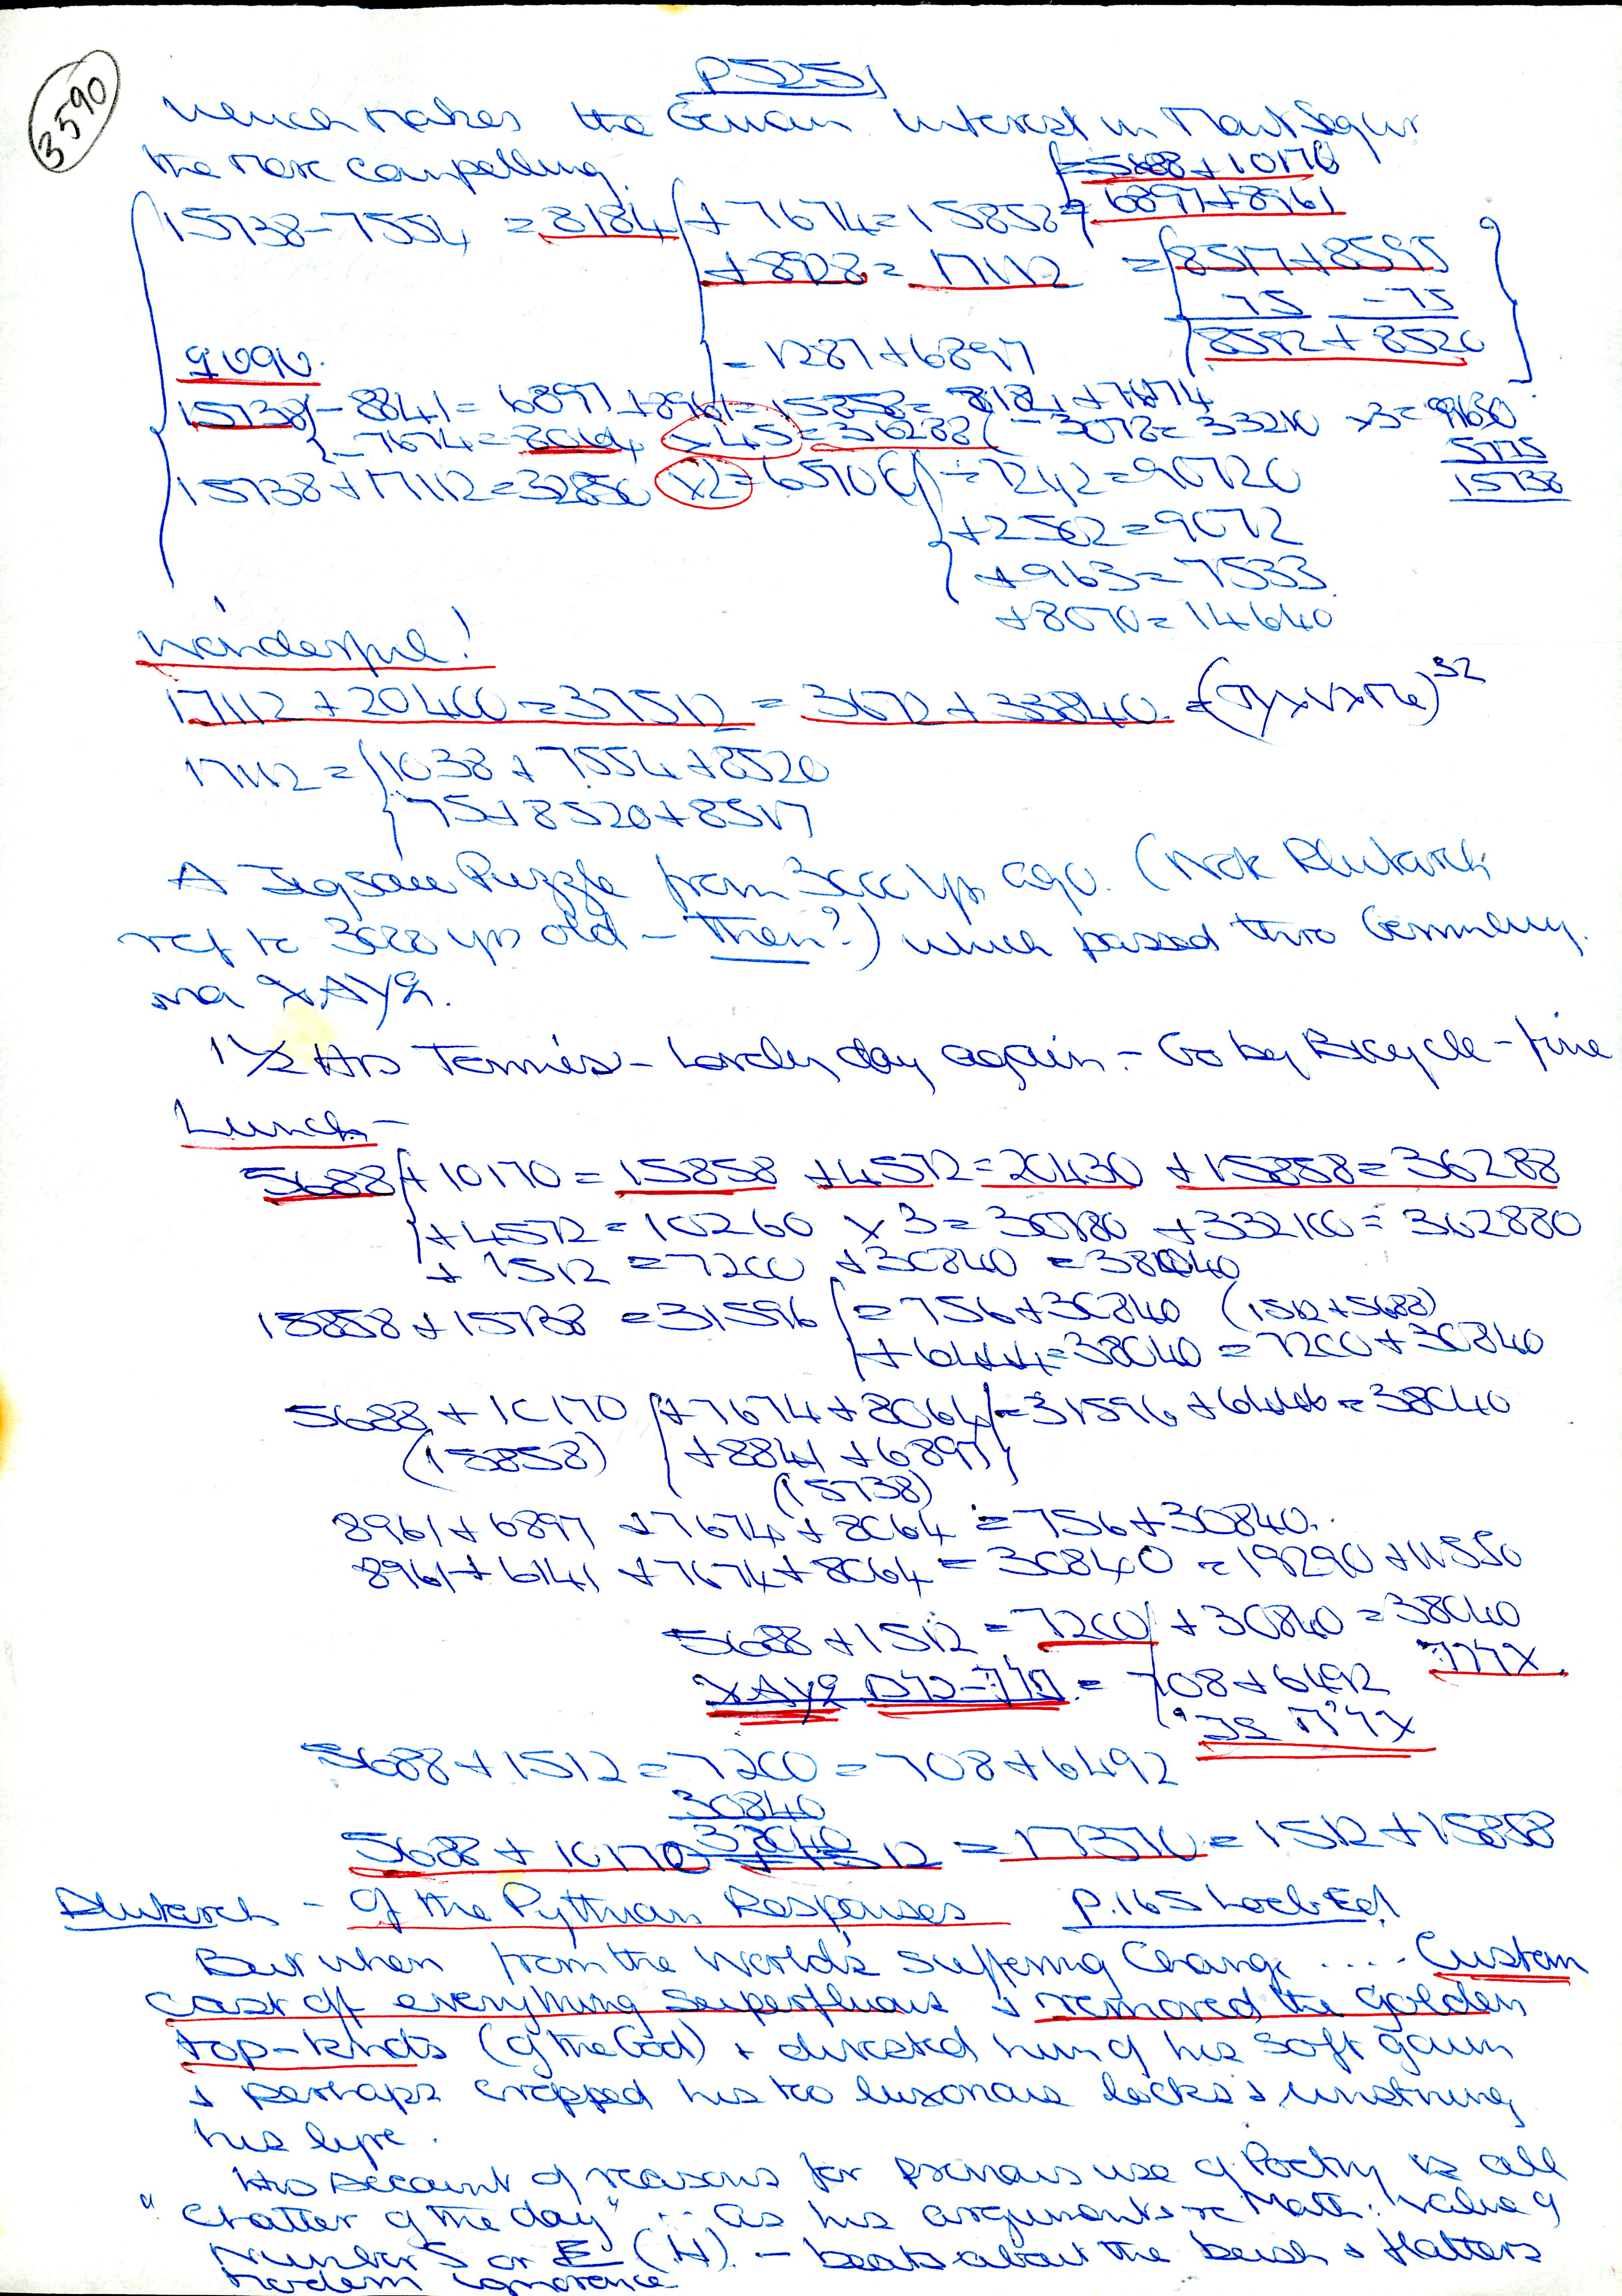 3590
P5251
which makes the German interest in Mont Segur
the more compelling.
= 5688 + 10170
15738 - 7554 = 8184 + 7674 = 15858 = 6897 + 8961
+ 8928 = 17112 = 8517 + 8595
75 - 75
8592 + 8520
= 1287 + 6897
15738 - 8841 = 6897 + 8961 = 15858 = 8184 + 7674
- 7674 = 8064 x 45 = 36288 - 3078 = 33210 x 3 = 99630
5775
15738
15738 + 17112 = 32850 x 2 = 65700 - 7242 = 90720
+ 2502 = 9072
+ 963 = 7533
+ 8070 = 14640
Wonderful!
17112 + 20400 = 37512 = 3672 + 33840
32
17112 = 1038 + 7554 + 8520
75 + 8520 + 8517
A Jigsaw Puzzle from 3000 yrs ago. (Not Plutarch
ref to 3000 yrs old - then?) which passed thro Germany
via
1½ Hrs Tennis - Lovely day again - Go by Bicycle - fine
Lunch -
5688 + 10170 = 15858 + 4572 = 20430 + 15858 = 36288
+ 4572 = 10260 x 3 = 30780 + 332100 = 362880
+ 1512 = 7200 + 30840 = 38040
15858 + 15738 = 31596 = 756 + 30840 (1512 + 5688)
+ 6444 = 38040 = 7200 + 30840
5688 + 10170 + 7674 + 8064 = 31596 + 6444 = 38040
(15858) + 8841 + 6897
(15738)
8961 + 6897 + 7674 + 8064 = 756 + 30840.
8961 + 6141 + 7674 + 8064 = 30840 = 19290 + 11550
5688 + 1512 = 7200 + 30840 = 38040
= 708 + 6492
5688 + 1512 = 7200 = 708 + 6492
30840
38040
5688 + 10170 + 1512 = 17370 = 1512 + 15858
Plutarch - Of the Pythian Responses P.165 Loeb Ed!
But when from the World's suffering Change .... Custom
cast off everything superfluous & removed the golden
top-knots (of the God) & divested him of his soft gown
& perhaps cropped his too luxurious locks & unstrung
his lyre.
His account of reasons for previous use of Poetry is all
"Chatter of the day" ... As his arguments re Math: value of
Number 5 or E (H) - beats about the bush & flatters
modern ignorance